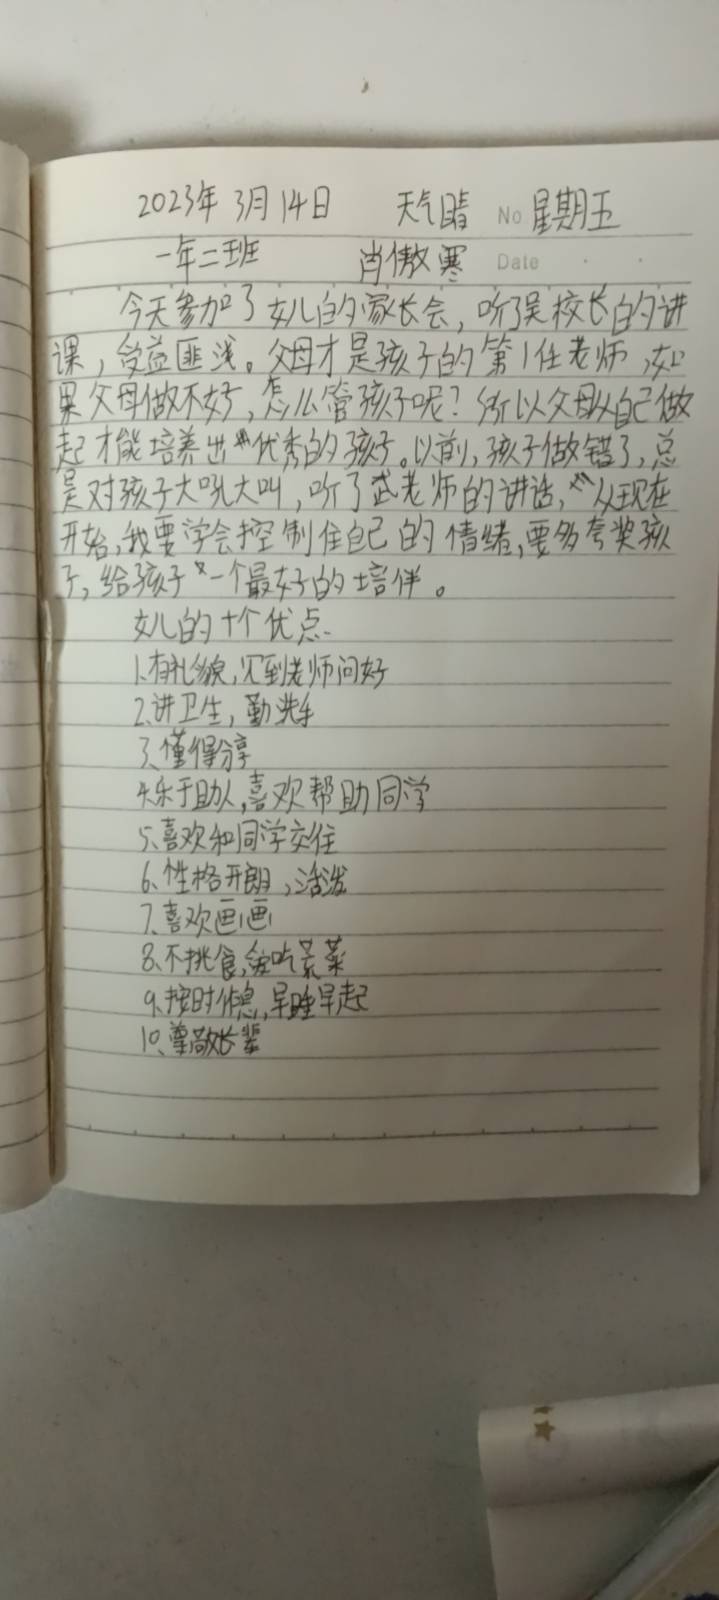 2023年3月14日 天气晴 No 星期五
一年二班 肖傲寒 Date
今天参加了女儿的家长会，听了吴校长的讲
课，受益匪浅。父母才是孩子的第1任老师，如
果父母做不好，怎么管孩子呢？所以父母从自己做
起才能培养出优秀的孩子。以前，孩子做错了，总
是对孩子大吼大叫，听了武老师的讲话，从现在
开始，我要学会控制住自己的情绪，要多夸奖孩
子，给孩子一个最好的培伴。
女儿的十个优点
1.有礼貌，见到老师问好
2.讲卫生，勤洗手
3、懂得分享
4.乐于助人，喜欢帮助同学
5、喜欢和同学交往
6、性格开朗，活泼
7、喜欢画画
8、不挑食，爱吃青菜
9、按时作息，早睡早起
10、尊敬长辈